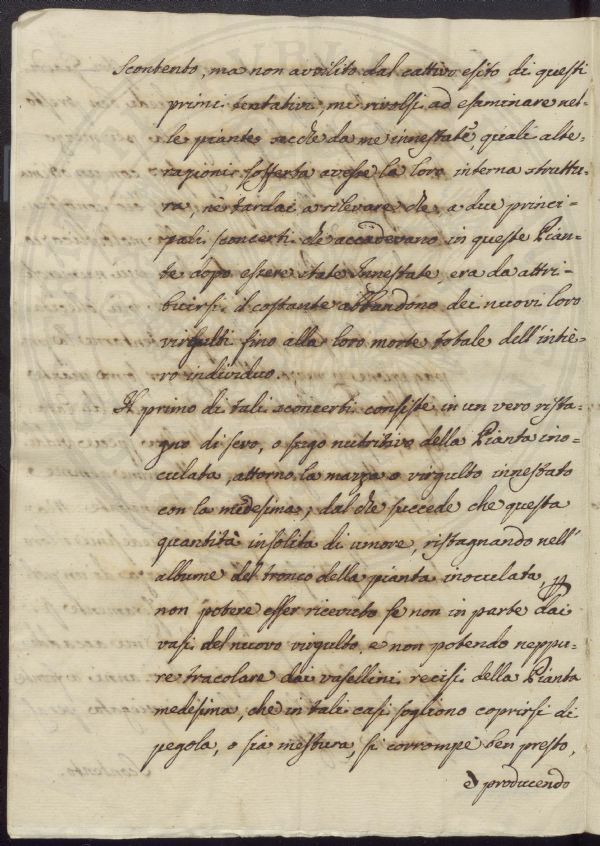 Scontento, ma non avvilito dal cattivo esito di questi
primi tentativi mi rivolsi ad esaminare nel-
le piante secche da me innestate, quali alte-
razioni sofferta avesse la loro interna struttu-
ra, nè tardai a rilevare che a due princi-
pali sconcerti che accadevano in queste Pian-
te dopo essere state Innestate, era da attri-
buirsi il costante abbandono dei nuovi loro
virgulti fino alla loro morte totale dell'intie-
ro individuo.
Il primo di tali sconcerti consiste in un vero rista-
gno di sevo, o sugo nutritivo della Pianta ino-
culata, attorno la mazza o virgulto innestato
con la medesima; dal che succede che questa
quantità insolita di umore, ristagnando nell'
albume del tronco della pianta inoculata,
non potere esser ricevuto se non in parte dai
vasi del nuovo virgulto, e non potendo neppu-
re tracolare dai vasellini recisi della Pianta
medesima, che in tali casi sogliono coprirsi di
pegola, o sia mestura, si corrompe ben presto,
e producendo